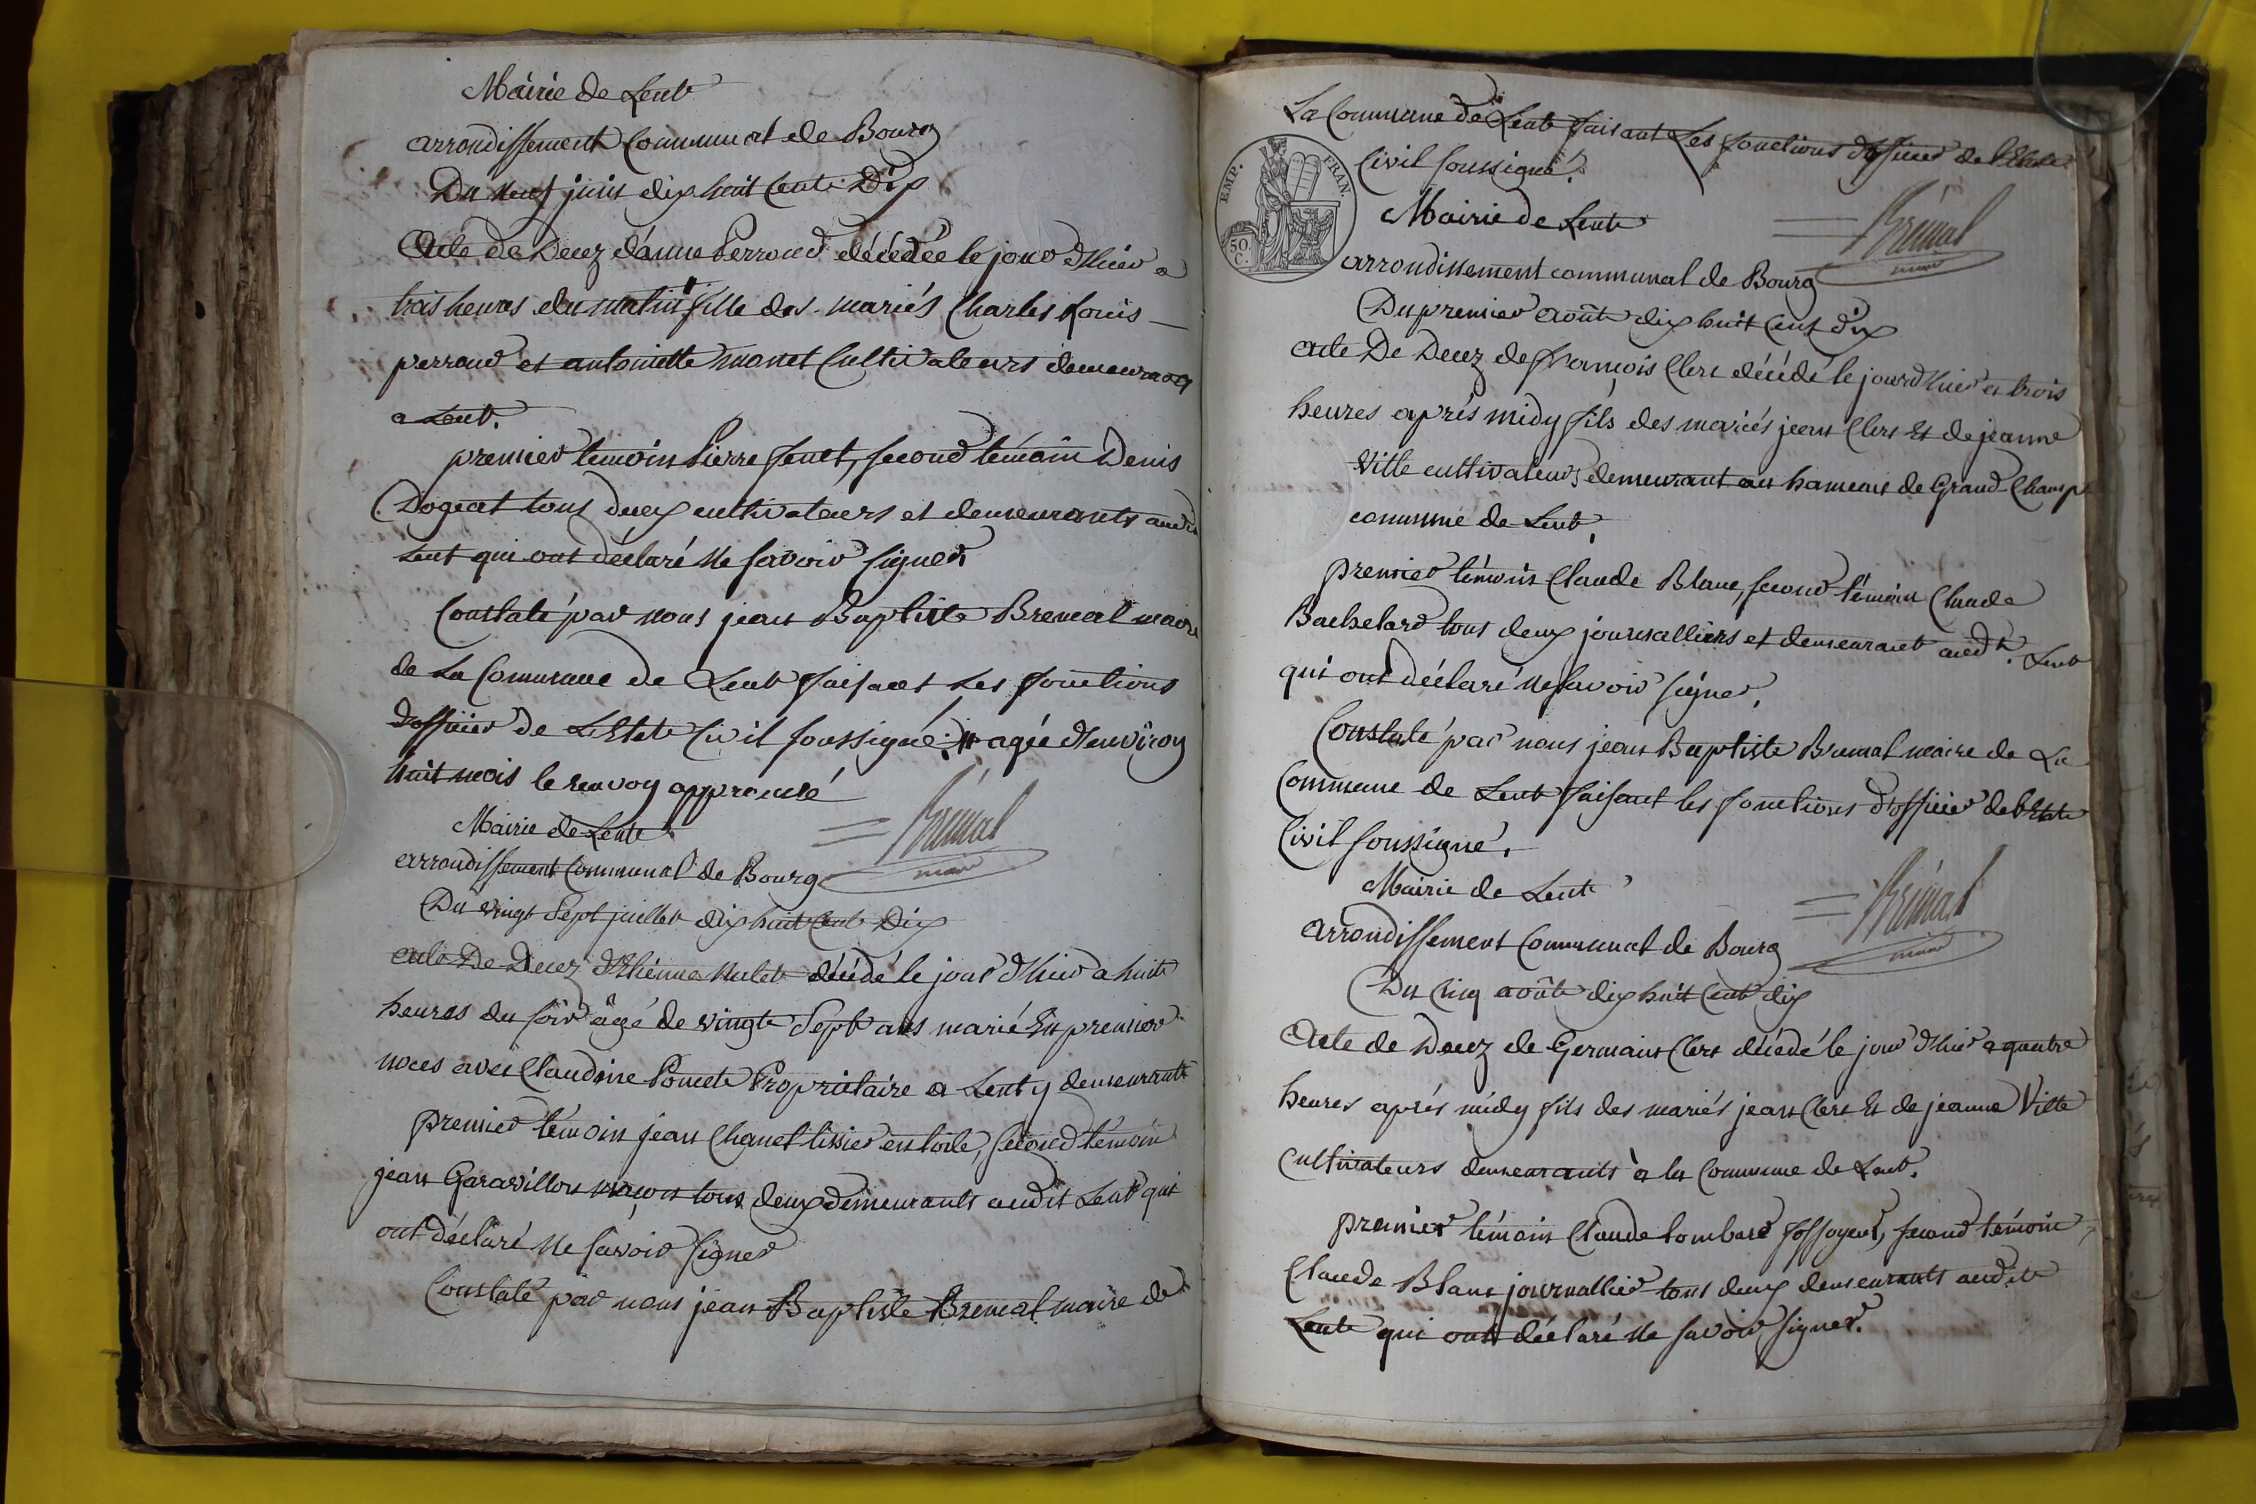 Mairie de Lent
arrondissement Communal de Bourg
Du neuf juin dix huit Cent Dix
Acte de Decez d'anne Perroud décédée le jour d'hier a
trois heures du matin # fille des mariés Charles Louis
perroud et antoinette monet Cultivateurs demeurant
a Lent.
premier témoin Pierre, second témoin Denis
Dogeat tous deux cultivateurs et demeurants audit
Lent qui ont déclaré ne savoir signer
Constaté par nous jean Baptiste Bremal maire
de La Commune de Lent faisant Les fonctions
d'officier de L'Etat Civil soussigné. # agée d'environ
huit mois le renvoy approuvé
Brémal
maire
Mairie de Lent
arrondissement Communal de Bourg
Du vingt Sept juillet dix huit Cent Dix
acte De Decez d'Etienne décédé le jour d'hier a huit
heures du soir âgé de vingt Sept ans marié En premier
noces avec Claudine Poncet Propriétaire a Lent y demeurant
premier témoin jean Chanel tissier en toile, second témoin
jean Garavillon maçon tous deux demeurants audit Lent qui
ont déclaré ne savoir signer
Constaté par nous jean Baptiste Bremal maire de
La Commune de Lent faisant Les fonctions d'officier de l'Etat
Civil soussigné.
EMP. FRAN.
50.
C.
Brémal
maire
Mairie de Lent
arrondissement communal de Bourg
Du premier août dix huit Cent dix
acte De Decez de françois Clerc décédé le jour d'hier a trois
heures aprés midy fils des mariés jean Clerc Et de jeanne
Vitte cultivateurs demeurant au hameau de Grand Champ
commune de Lent,
premier témoin Claude Blanc, second témoin Claude
Bachelard tous deux journalliers et demeurant audt. Lent
qui ont déclaré ne savoir signer,
Constaté par nous jean Baptiste Bremal maire de La
Commune de Lent faisant les fonctions d'officier de l'Etat
Civil soussigné,
Brémal
maire
Mairie de Lent
arrondissement Communal de Bourg
Du Cinq août dix huit Cent dix
Acte de Decez de Germain Clerc décédé le jour d'hier a quatre
heures aprés midy fils des mariés jean Clerc Et de jeanne Vitte
Cultivateurs demeurants à la Commune de Lent.
premier témoin Claude fossoyeur, second témoin,
Claude Blanc journallier tous deux demeurants audit
Lent qui ont déclaré ne savoir signer.